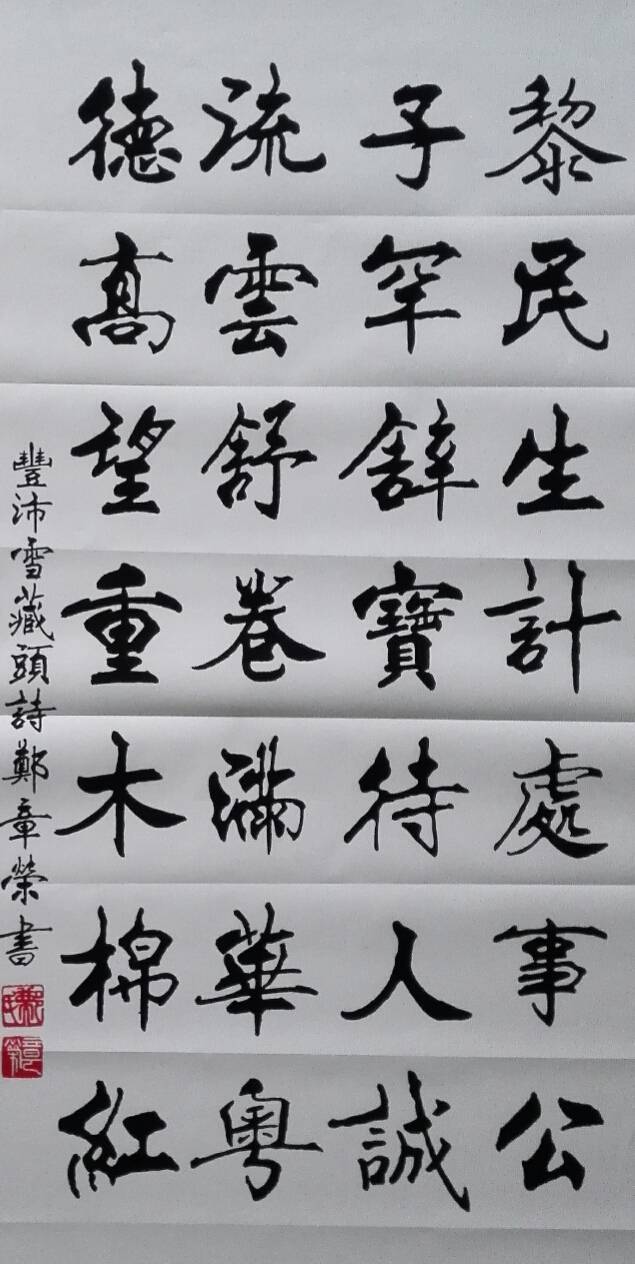 黎民生計處事公
子罕辭寶待人誠
流雲舒卷滿華粵
德高望重木棉紅
豐沛雪藏頭詩鄭章榮書